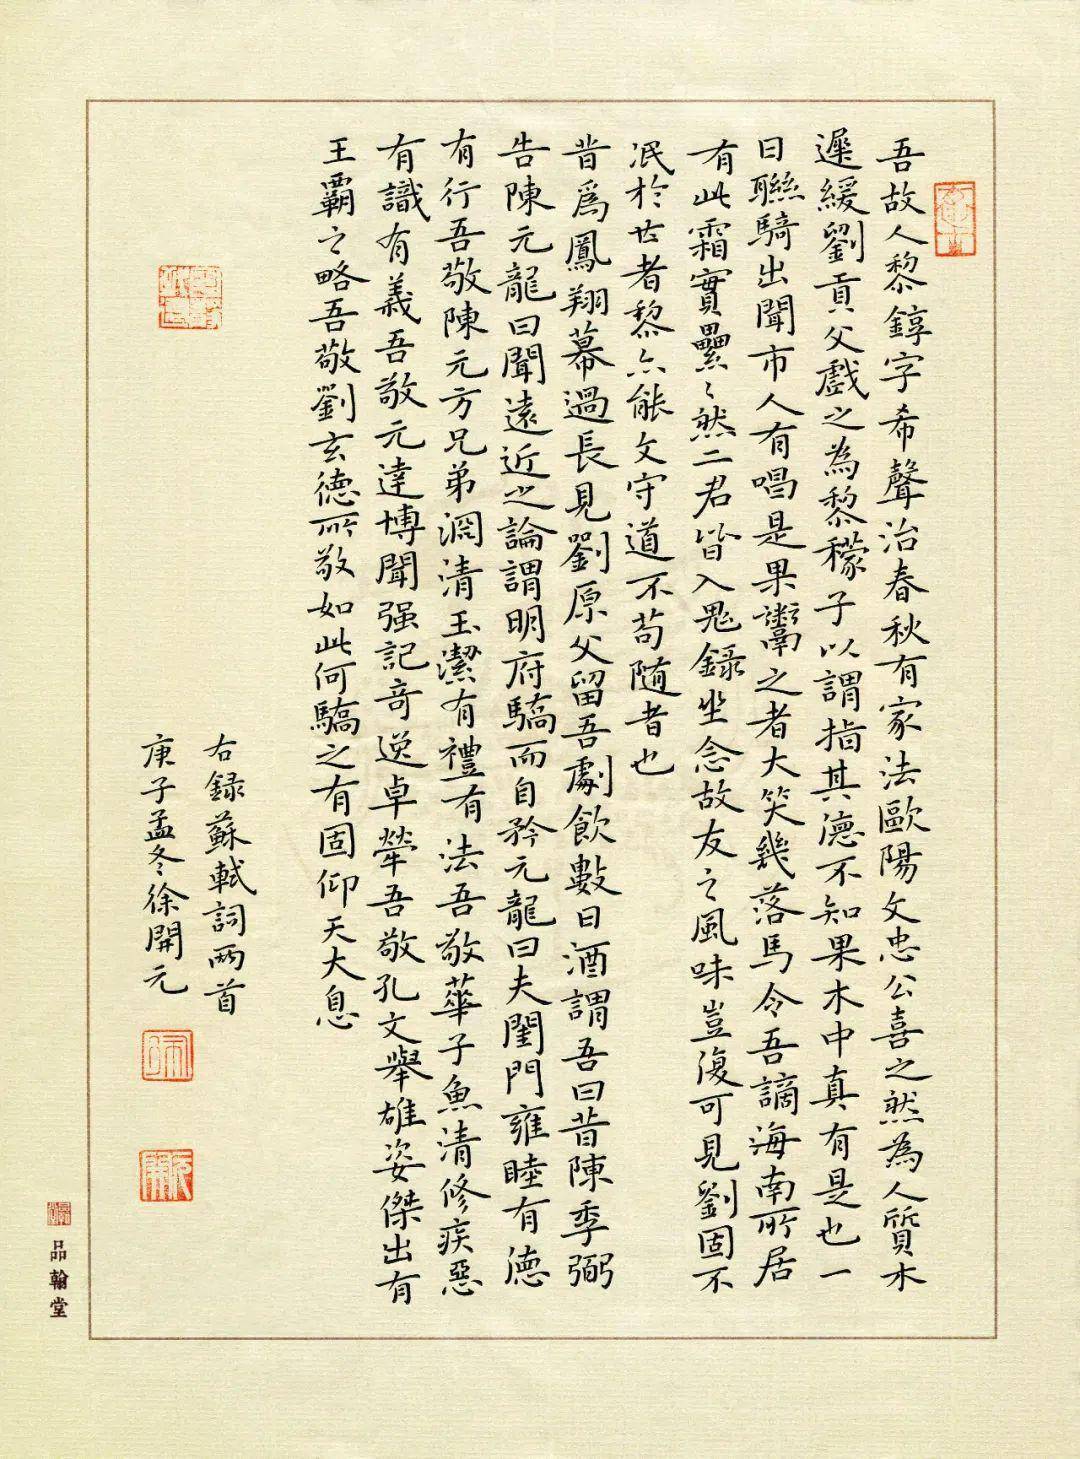 吾故人黎錞字希聲治春秋有家法歐陽文忠公喜之然為人質木
遲緩劉貢父戲之為黎檬子以謂指其德不知果木中真有是也一
日聯騎出聞市人有唱是果鬻之者大笑幾落馬今吾謫海南所居
有此霜實纍々然二君皆入鬼錄坐念故友之風味豈復可見劉固不
泯於世者黎亦能文守道不苟随者也
昔為鳳翔幕過長見劉原父留吾劇飲數日酒謂吾曰昔陳季弼
告陳元龍曰聞遠近之論謂明府驕而自矜元龍曰夫閨門雍睦有德
有行吾敬陳元方兄弟淵清玉潔有禮有法吾敬華子魚清修疾惡
有識有義吾敬元達博聞强記奇逸卓犖吾敬孔文舉雄姿傑出有
王霸之略吾敬劉玄德所敬如此何驕之有固仰天大息
右録蘇軾詞兩首
庚子孟冬徐開元
品翰堂